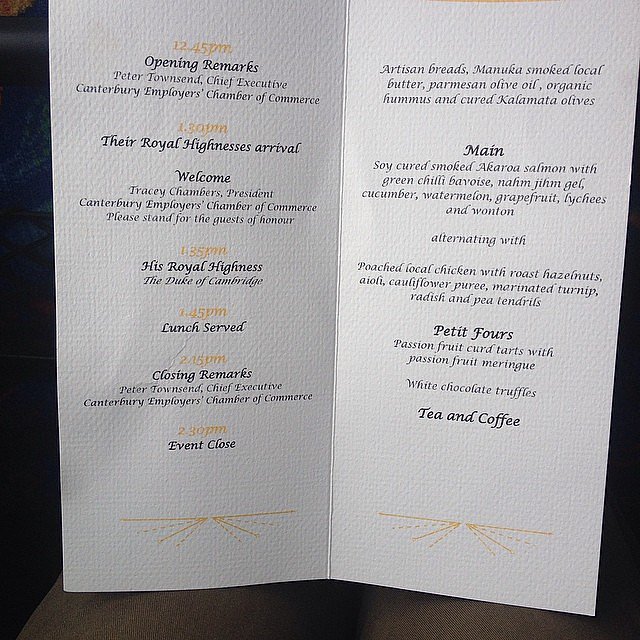 12.45pm
Opening Remarks
Peter Townsend, Chief Executive
Canterbury Employers' Chamber of Commerce
1.30pm
Their Royal Highnesses arrival
Welcome
Tracey Chambers, President
Canterbury Employers' Chamber of Commerce
Please stand for the guests of honour
1.35pm
His Royal Highness
The Duke of Cambridge
1.45pm
Lunch Served
2.15pm
Closing Remarks
Peter Townsend, Chief Executive
Canterbury Employers' Chamber of Commerce
2.30pm
Event Close
Artisan breads, Manuka smoked local
butter, parmesan olive oil , organic
hummus and cured Kalamata olives
Main
Soy cured smoked Akaroa salmon with
green chilli bavoise, nahm jihm gel,
cucumber, watermelon, grapefruit, lychees
and wonton
alternating with
Poached local chicken with roast hazelnuts,
aioli, cauliflower puree, marinated turnip,
radish and pea tendrils
Petit Fours
Passion fruit curd tarts with
passion fruit meringue
White chocolate truffles
Tea and Coffee